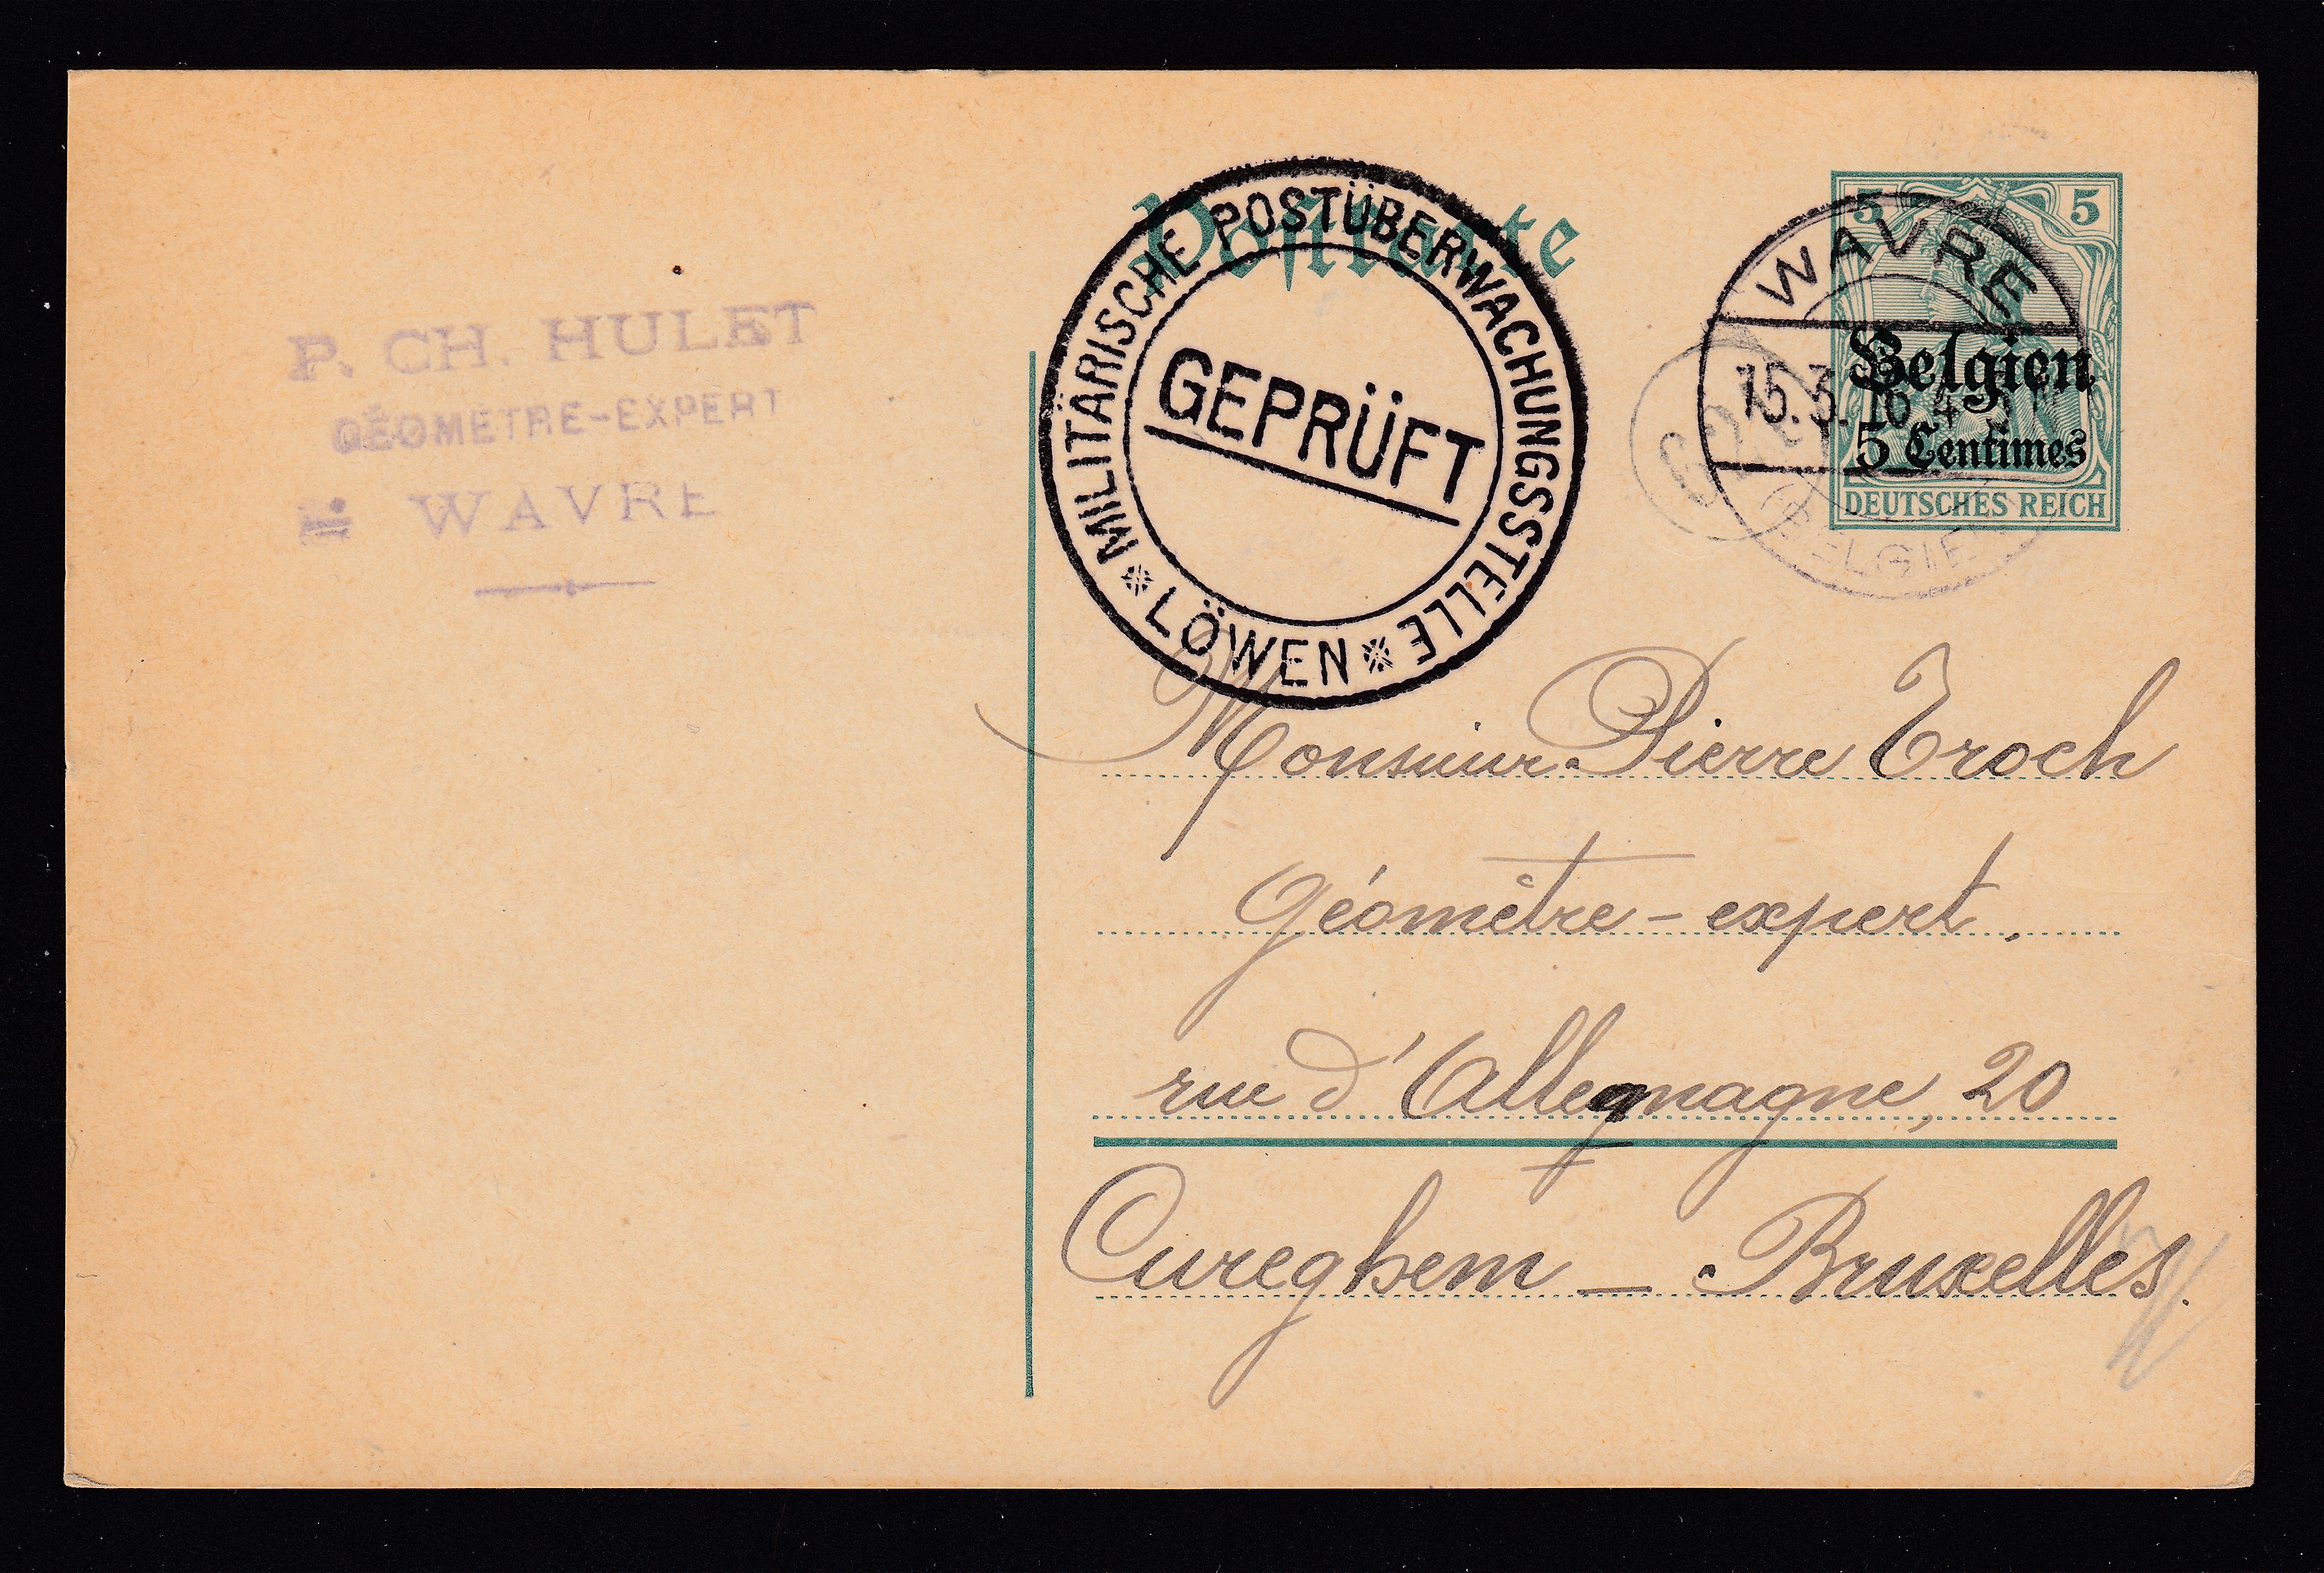 P. CH. HULET
GÉOMÈTRE-EXPERT
WAVRE
Postkarte
MILITÄRISCHE POSTÜBERWACHUNGSSTELLE
* LÖWEN *
GEPRÜFT
5 5
Belgien
5 Centimes
DEUTSCHES REICH
WAVRE
15.3.16 4-5
(BELGIEN)
Monsieur Pierre Troch
Géomètre-expert.
rue d'Allemagne, 20
Cureghem - Bruxelles.